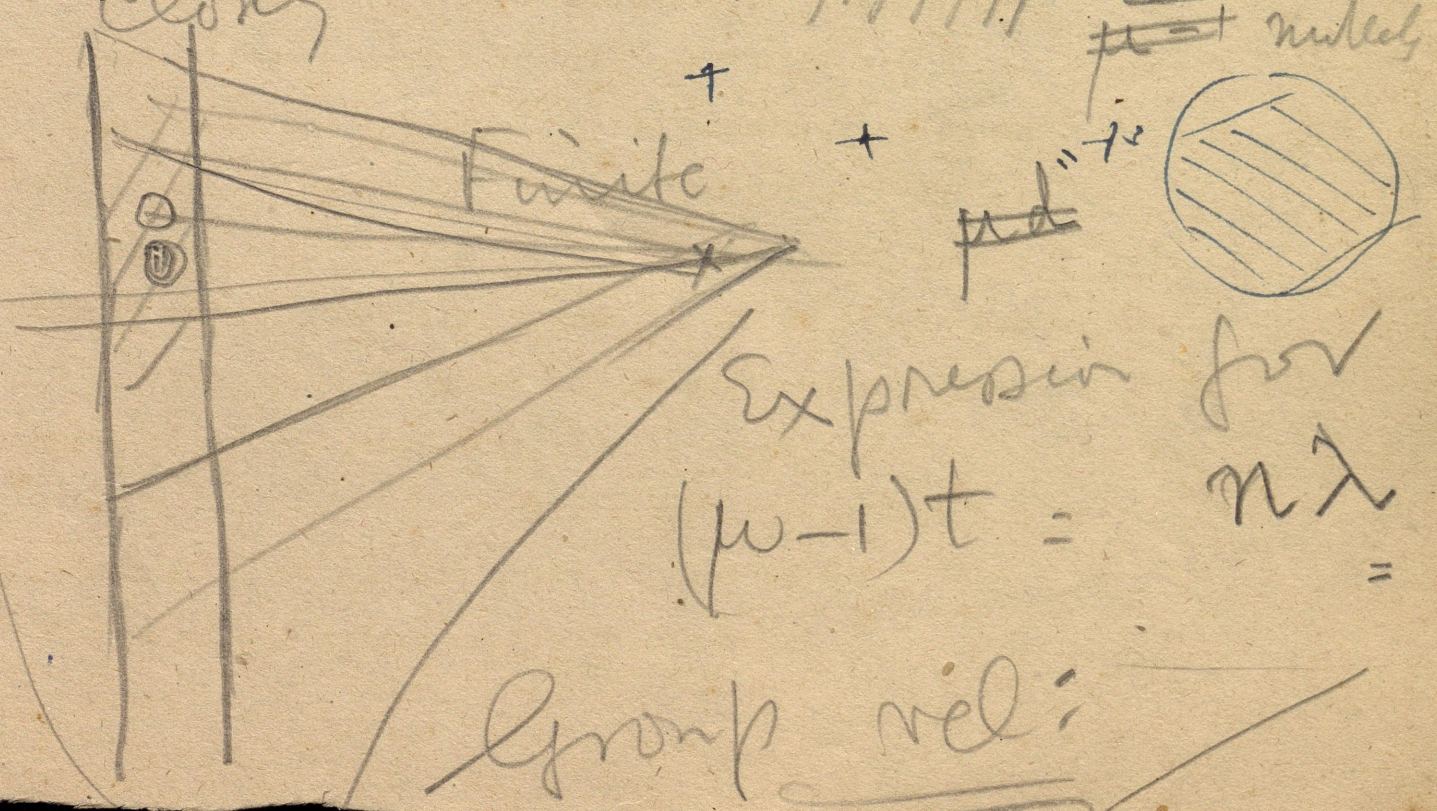 Closely
Finite
μd"
Expression for
(μ-1)t = nλ
=
Group vel: